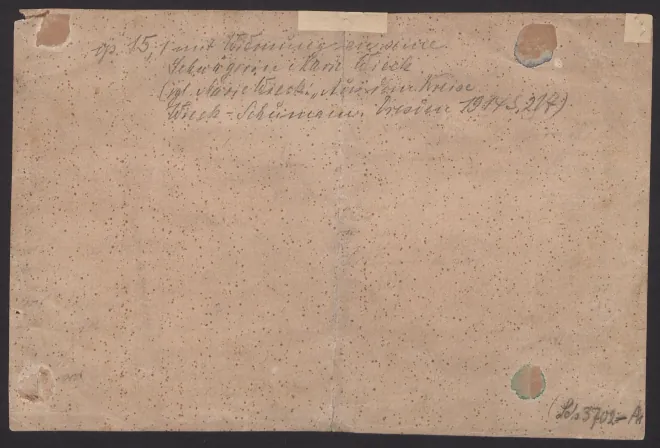 op. 85,1 mit Widmung an seine
Schwägerin Marie Wieck
(vgl. Marie Wieck, "Aus dem Kreise
Wieck-Schumann. Dresden 1914 S. 214)
3702-A